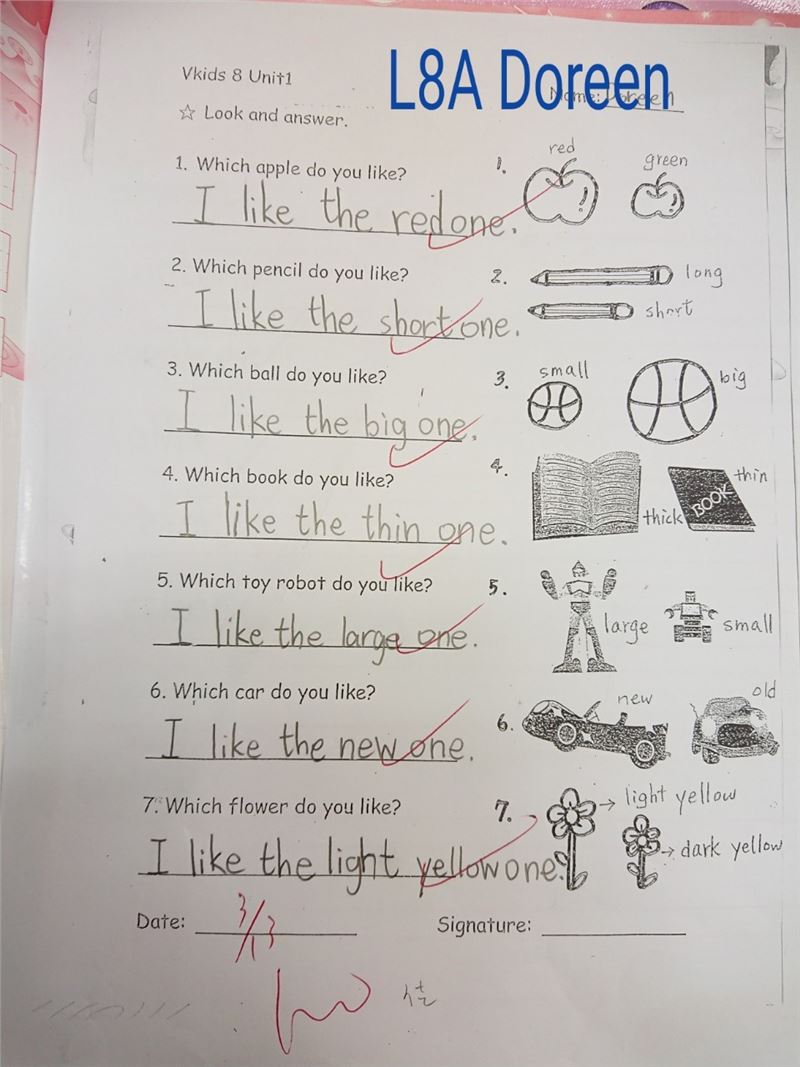 L8A Doreen
Vkids 8 Unit1
Name: Doreen
☆ Look and answer.
1. Which apple do you like?
I like the red one.
1. red green
2. Which pencil do you like?
I like the short one.
2. long
short
3. Which ball do you like?
I like the big one.
3. small big
4. Which book do you like?
I like the thin one.
4. thick BOOK thin
5. Which toy robot do you like?
I like the large one.
5. large small
6. Which car do you like?
I like the new one.
6. new old
7. Which flower do you like?
I like the light yellow one.
7. → light yellow
→ dark yellow
Date: 3/13
Signature: